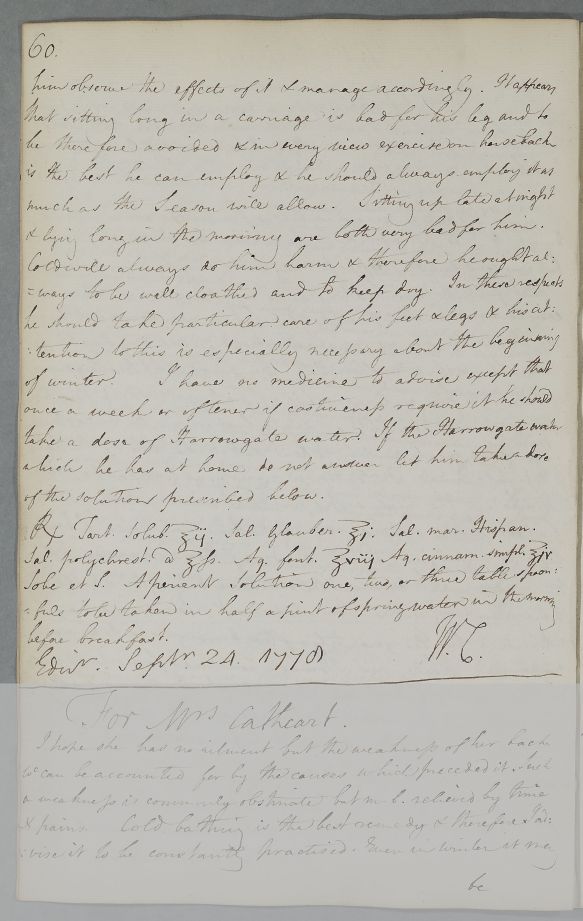 60.
him observe the effects of it & manage accordingly. It appears
that sitting long in a carriage is bad for his leg and to
be therefore avoided & in every view exercise on horseback
is the best he can employ & he should always employ it as
much as the Season will allow. Sitting up late at night
& lying long in the morning are both very bad for him.
Cold will always do him harm & therefore he ought al:
=ways to be well cloathed and to keep dry. In these respects
he should take particular care of his feet & legs & his at:
:tention to this is especially necessary about the beginning
of winter. I have no medicine to advise except that
once a week or oftener if costiveness require it he should
take a dose of Harrowgate water. If the Harrowgate water
which he has at home do not answer let him take a dose
of the solutions prescribed below.
℞ Tart. Solub. ℥ij. Sal. Glauber. ℥j. Sal. mar. Hispan.
Sal. polychrest. a ℥ſs. Aq. font. ℥viij Aq. cinnam. simpl. ℥iv
Solve et S. Aperient Solution one, two, or three table spoon:
=fuls to be taken in half a pint of spring water in the morning
before breakfast.
Edinr. Septr. 24. 1778 W. C.
For Mrs Cathcart.
I hope she has no ailment but the weakness of her back
wc can be accounted for by the causes which preceded it. Such
a weakness is commonly obstinate but m. b. relieved by time
& pains. Cold bathing is the best remedy & therefore I ad:
:vise it to be constantly practised. Even in winter it may
be